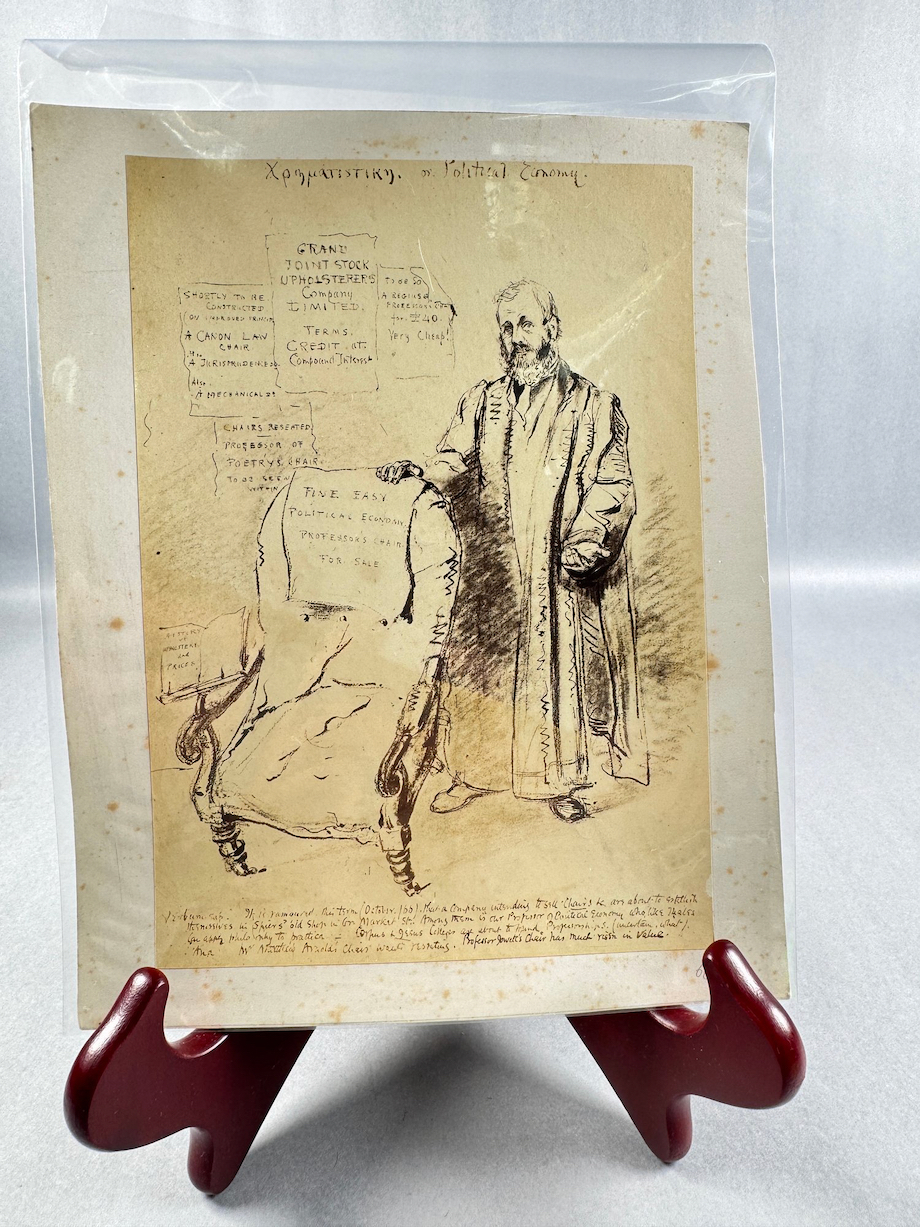 Χρηματιστικη. or Political Economy.
GRAND
JOINT STOCK
UPHOLSTERERS
Company
LIMITED.
TERMS.
CREDIT. at
Compound Interest
SHORTLY TO BE
CONSTRUCTED
ON IMPROVED
A CANON LAW
CHAIR
A JURISPRUDENCE DO.
Also
A MECHANICAL
TO BE
A REGIUS
for £40.
Very Cheap!
CHAIRS RESEATED.
PROFESSOR OF
POETRY'S CHAIR
TO BE SEEN
WITHIN
FINE EASY
POLITICAL ECONOMY
PROFESSOR'S CHAIR
FOR SALE
and
PRICES
Verbum sap. It is rumoured this term (October /60). that a Company intending to sell Chairs &c, are about to establish
themselves in Spiers' old Shop in Corn Market St. Among them is our Professor of Political Economy who like Thales
can apply philosophy to practice - Corpus & Jesus Colleges are about to found Professorships (uncertain, what).
Mr Matthew Arnold's Chair wants reseating. Professor Jowett's Chair has much risen in Value.